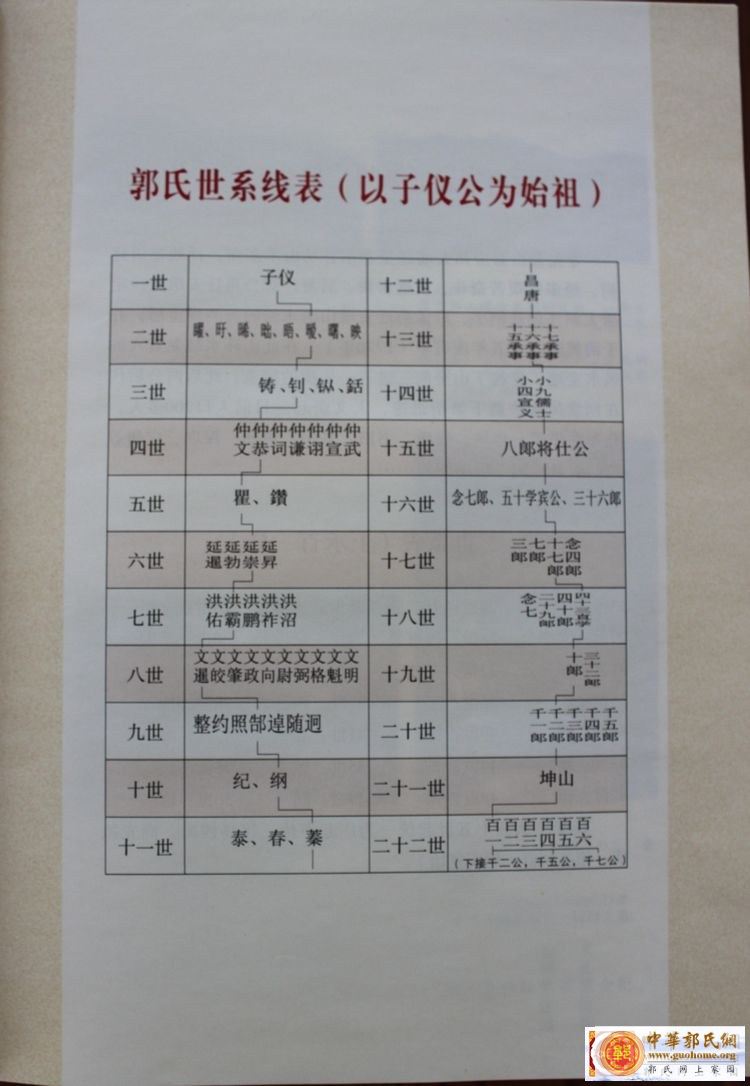 郭氏世系线表（以子仪公为始祖）
一世 子仪
二世 曜、旰、晞、昢、晤、暧、曙、映
三世 铸、钊、鏦、銛
四世 仲文 仲恭 仲词 仲谦 仲诩 仲宣 仲武
五世 瞿、鑽
六世 延暹 延勃 延崇 延昇
七世 洪佑 洪霸 洪鹏 洪祚 洪沼
八世 文暹 文皎 文肇 文政 文向 文尉 文弼 文格 文魁 文明
九世 整约照郜逴随迥
十世 纪、纲
十一世 泰、春、蓁
十二世 昌唐
十三世 十五承事 十六承事 十七承事
十四世 小四宣义 小九儒士
十五世 八郎将仕公
十六世 念七郎、五十学宾公、三十六郎
十七世 三郎 七郎 十七郎 念四郎
十八世 念七 二十九郎 四十郎 四十三直学
十九世 十郎 三十二郎
二十世 千一郎 千二郎 千三郎 千四郎 千五郎
二十一世 坤山
二十二世 百一 百二 百三 百四 百五 百六
（下接千二公，千五公，千七公）
中華郭氏網
www.guohome.org
郭氏网上家园